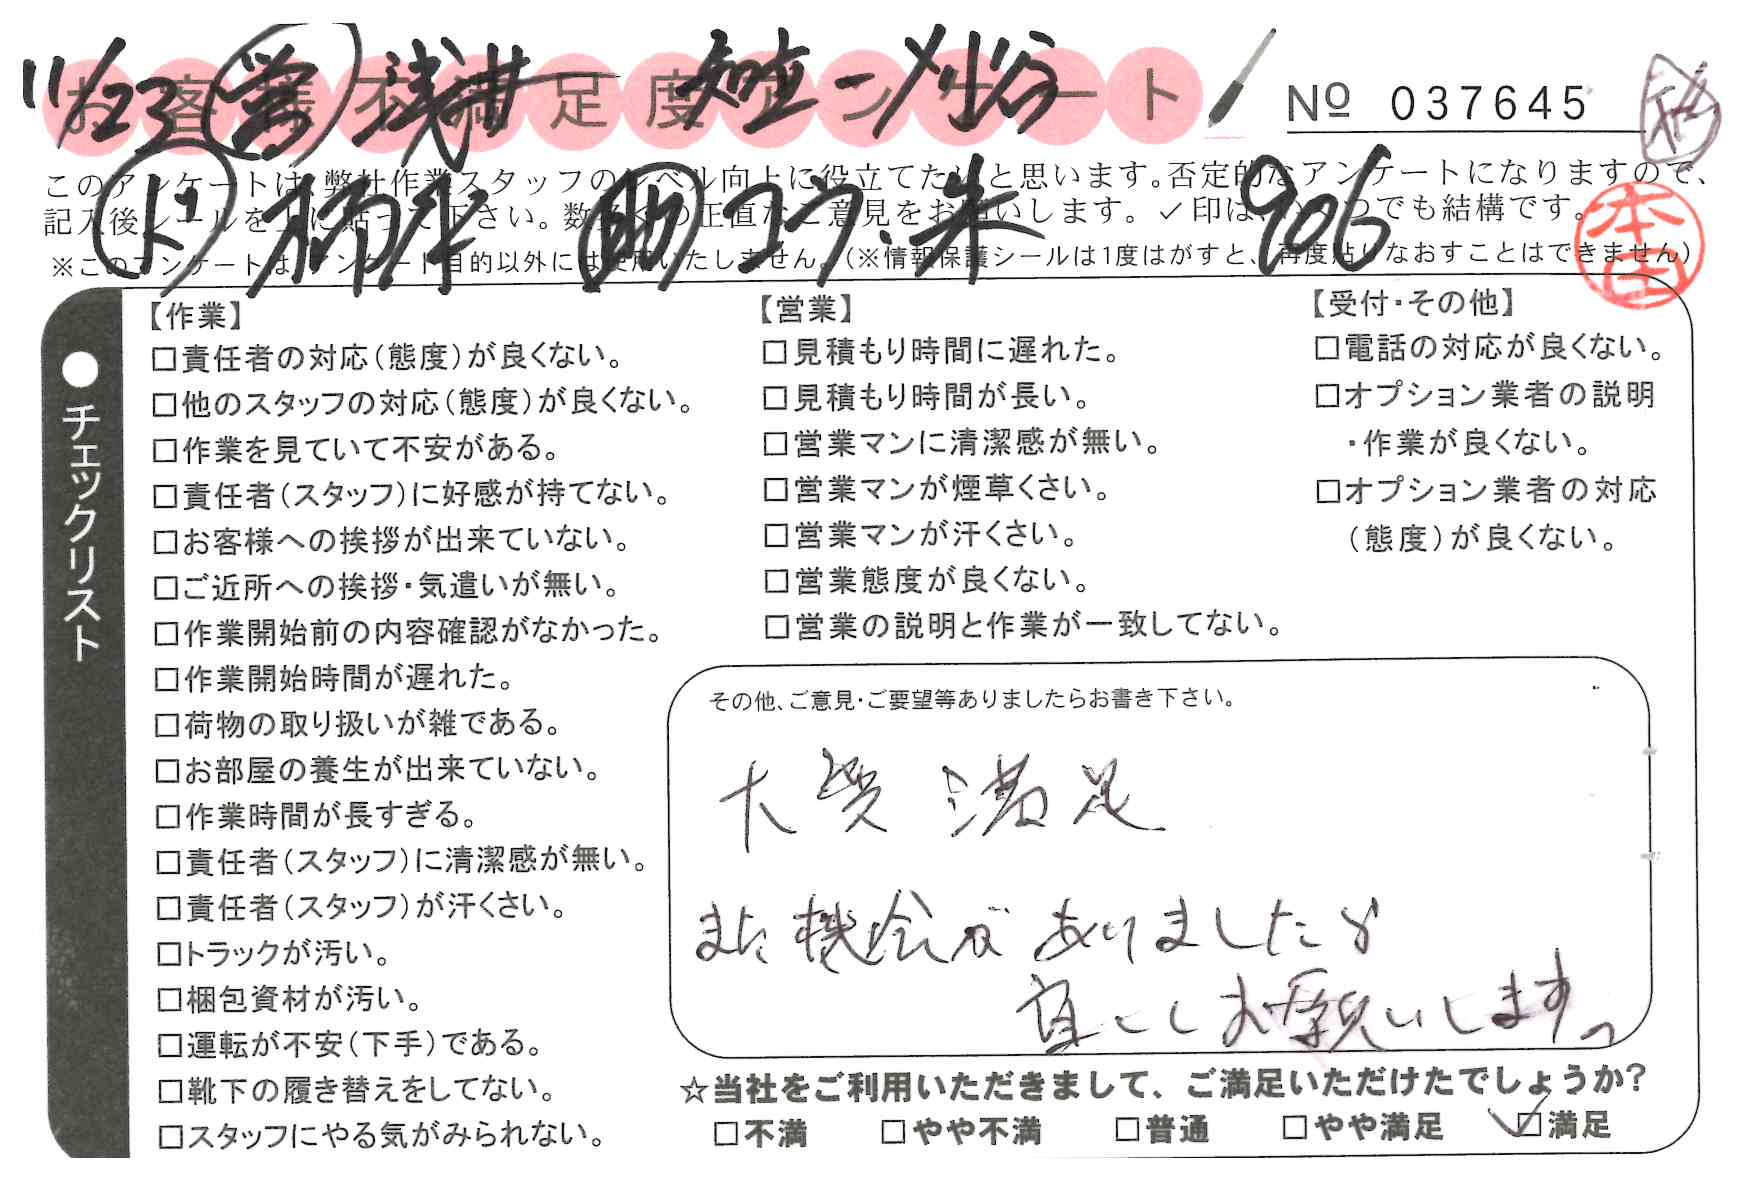 お客様不満足度アンケート
11/23 営 浅井 知立→刈谷
No 037645
このアンケートは、弊社作業スタッフのレベル向上に役立てたいと思います。否定的なアンケートになりますので、
記入後シールを上に貼って下さい。数多くの正直なご意見をお願いします。✓印はいくつでも結構です。
※このアンケートは、アンケート目的以外には使用いたしません。(※情報保護シールは1度はがすと、再度貼りなおすことはできません)
ド 柿平 助 コウ、朱 906
●チェックリスト
【作業】
□責任者の対応(態度)が良くない。
□他のスタッフの対応(態度)が良くない。
□作業を見ていて不安がある。
□責任者(スタッフ)に好感が持てない。
□お客様への挨拶が出来ていない。
□ご近所への挨拶・気遣いが無い。
□作業開始前の内容確認がなかった。
□作業開始時間が遅れた。
□荷物の取り扱いが雑である。
□お部屋の養生が出来ていない。
□作業時間が長すぎる。
□責任者(スタッフ)に清潔感が無い。
□責任者(スタッフ)が汗くさい。
□トラックが汚い。
□梱包資材が汚い。
□運転が不安(下手)である。
□靴下の履き替えをしてない。
□スタッフにやる気がみられない。
【営業】
□見積もり時間に遅れた。
□見積もり時間が長い。
□営業マンに清潔感が無い。
□営業マンが煙草くさい。
□営業マンが汗くさい。
□営業態度が良くない。
□営業の説明と作業が一致してない。
【受付・その他】
□電話の対応が良くない。
□オプション業者の説明
・作業が良くない。
□オプション業者の対応
(態度)が良くない。
その他、ご意見・ご要望等ありましたらお書き下さい。
大変満足
また機会がありましたら
宜しくお願いします。
☆当社をご利用いただきまして、ご満足いただけたでしょうか?
□不満 □やや不満 □普通 □やや満足 ☑満足